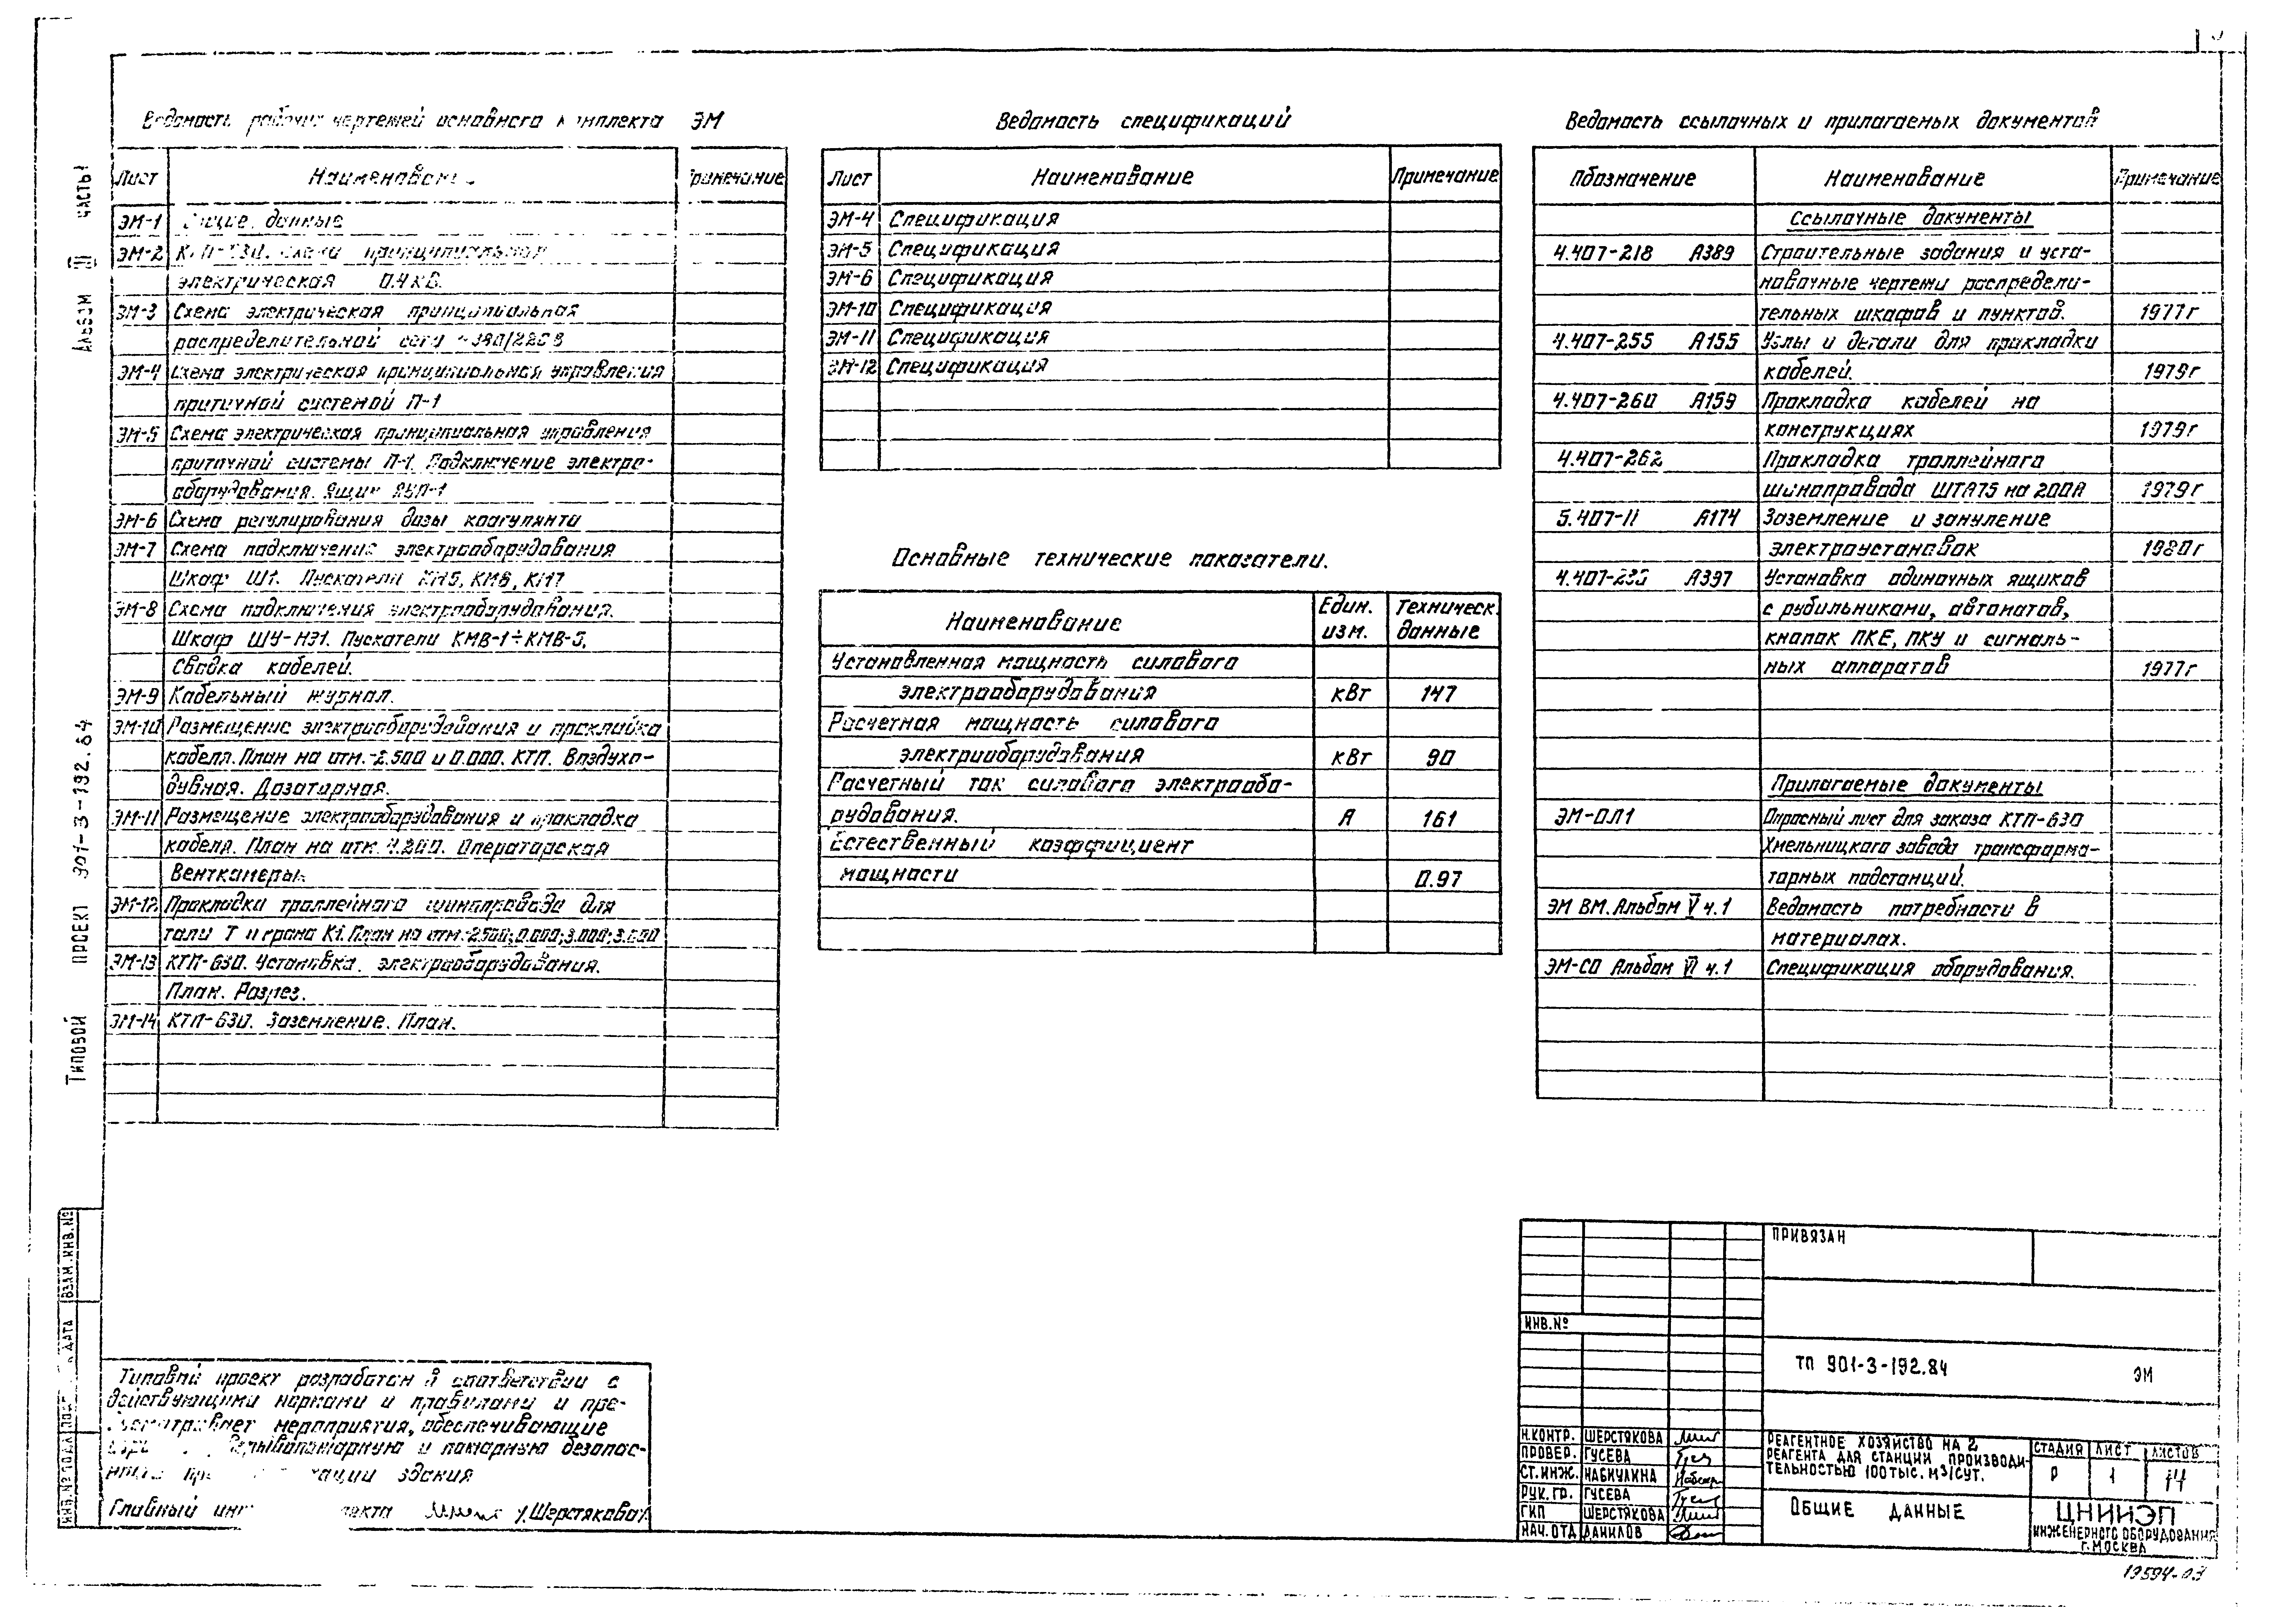 Ведомость рабочих чертежей основного комплекта ЭМ
Лист Наименование Примечание
ЭМ-1 Общие данные
ЭМ-2 КТП-630. Схема принципиальная
электрическая 0.4 кВ.
ЭМ-3 Схема электрическая принципиальная
распределительной сети ~380/220 В
ЭМ-4 Схема электрическая принципиальная управления
приточной системой П-1
ЭМ-5 Схема электрическая принципиальная управления
приточной системы П-1. Подключение электро-
оборудования. Ящик
ЭМ-6 Схема регулирования дозы коагулянта
ЭМ-7 Схема подключения электрооборудования
Шкаф Ш1. Пускатели КМ5, КМ6, КМ7
ЭМ-8 Схема подключения электрооборудования.
Шкаф ШУ-НЭ1. Пускатели КМВ-1÷КМВ-5.
Сводка кабелей.
ЭМ-9 Кабельный журнал.
ЭМ-10 Размещение электрооборудования и прокладка
кабеля. План на отм.-2.500 и 0.000. КТП. Воздухо-
дувная. Дозаторная.
ЭМ-11 Размещение электрооборудования и прокладка
кабеля. План на отм. Операторская
Венткамеры.
ЭМ-12 Прокладка троллейного шинопровода для
тали Т и крана К1. План на отм.-2.500; 0.000; 3.000; 3.600
ЭМ-13 КТП-630. Установка электрооборудования.
План. Разрез.
ЭМ-14 КТП-630. Заземление. План.
Ведомость спецификаций
Лист Наименование Примечание
ЭМ-4 Спецификация
ЭМ-5 Спецификация
ЭМ-6 Спецификация
ЭМ-10 Спецификация
ЭМ-11 Спецификация
ЭМ-12 Спецификация
Основные технические показатели.
Наименование Един. изм. Техническ. данные
Установленная мощность силового
электрооборудования кВт 147
Расчетная мощность силового
электрооборудования кВт 90
Расчетный ток силового электрообо-
рудования. А 161
Естественный коэффициент
мощности 0.97
Ведомость ссылочных и прилагаемых документов
Обозначение Наименование Примечание
Ссылочные документы
4.407-218 А389 Строительные задания и уста-
новочные чертежи распредели-
тельных шкафов и пунктов. 1977г
4.407-255 А155 Узлы и детали для прокладки
кабелей. 1979г
4.407-260 А159 Прокладка кабелей на
конструкциях 1979г
4.407-262 Прокладка троллейного
шинопровода ШТА75 на 200А 1979г
5.407-11 А174 Заземление и зануление
электроустановок 1980г
А397 Установка одиночных ящиков
с рубильниками, автоматов,
кнопок ПКЕ, ПКУ и сигналь-
ных аппаратов 1977г
Прилагаемые документы
ЭМ-ОЛ1 Опросный лист для заказа КТП-630
Хмельницкого завода трансформа-
торных подстанций.
ЭМ ВМ. Альбом V ч.1 Ведомость потребности в
материалах.
ЭМ-СО Альбом VI ч.1 Спецификация оборудования.
Типовой проект 901-3-192.84 Альбом III часть 1
ИНВ.№ ПОДЛ. ДАТА ВЗАМ.ИНВ.№
Типовой проект разработан в соответствии с
действующими нормами и правилами и пре-
дусматривает мероприятия, обеспечивающие
взрывопожарную и пожарную безопас-
ность здания
Главный инженер проекта /Шерстякова/
ПРИВЯЗАН
ИНВ.№
ТП 901-3-192.84 ЭМ
Н.КОНТР. ШЕРСТЯКОВА
ПРОВЕР. ГУСЕВА
СТ.ИНЖ. НАБИУЛИНА
РУК.ГР. ГУСЕВА
ГИП ШЕРСТЯКОВА
НАЧ.ОТД ДАНИЛОВ
РЕАГЕНТНОЕ ХОЗЯЙСТВО НА 2
РЕАГЕНТА ДЛЯ СТАНЦИИ ПРОИЗВОДИ-
ТЕЛЬНОСТЬЮ 100 ТЫС. М3/СУТ.
СТАДИЯ ЛИСТ ЛИСТОВ
Р 1 14
ОБЩИЕ ДАННЫЕ
ЦНИИЭП
ИНЖЕНЕРНОГО ОБОРУДОВАНИЯ
Г.МОСКВА
19594-03